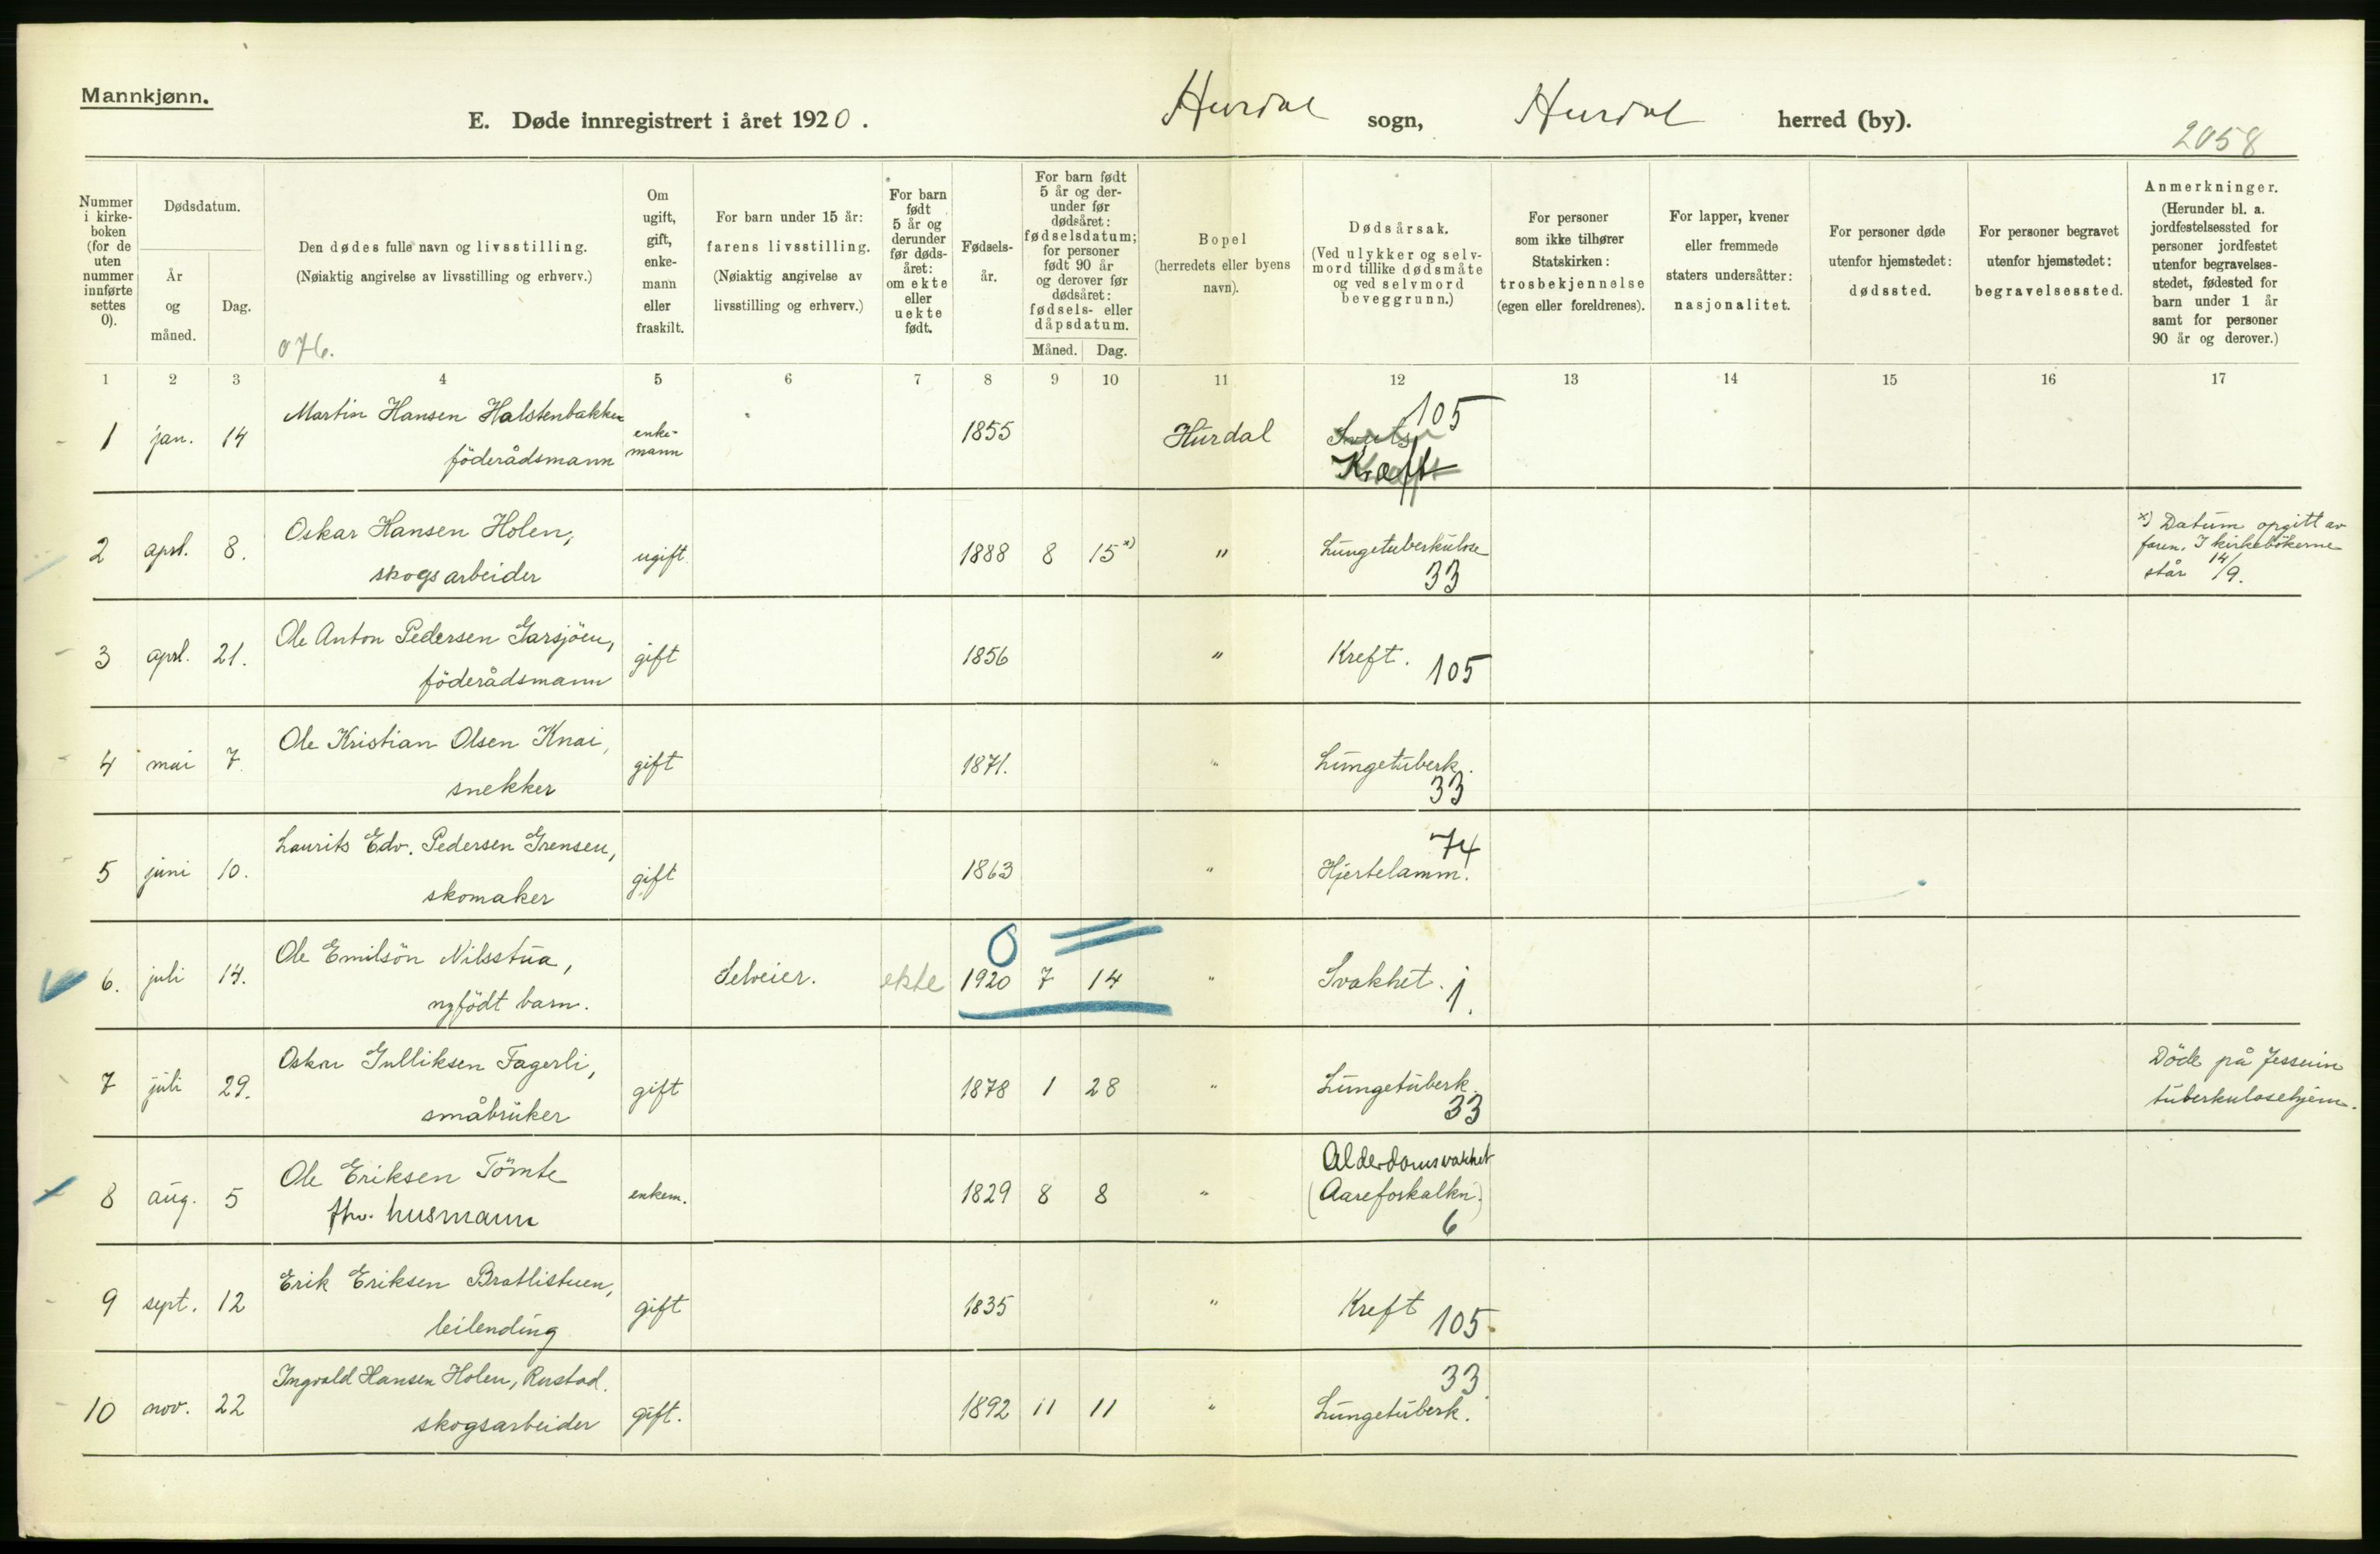 Mannkjønn.
E. Døde innregistrert i året 1920. Hurdal sogn, Hurdal herred (by).
2058
Nummer i kirkeboken (for de uten nummer innførte settes 0).
Dødsdatum.
År og måned.
Dag.
Den dødes fulle navn og livsstilling.
(Nøiaktig angivelse av livsstilling og erhverv.)
076.
Om ugift, gift, enkemann eller fraskilt.
For barn under 15 år: farens livsstilling.
(Nøiaktig angivelse av livsstilling og erhverv.)
For barn født 5 år og derunder før dødsåret: om ekte eller uekte født.
Fødselsår.
For barn født 5 år og derunder før dødsåret: fødselsdatum; for personer født 90 år og derover før dødsåret: fødsels- eller dåpsdatum.
Måned. Dag.
Bopel (herredets eller byens navn).
Dødsårsak.
(Ved ulykker og selvmord tillike dødsmåte og ved selvmord beveggrunn.)
For personer som ikke tilhører Statskirken: trosbekjennelse (egen eller foreldrenes).
For lapper, kvener eller fremmede staters undersåtter: nasjonalitet.
For personer døde utenfor hjemstedet: dødssted.
For personer begravet utenfor hjemstedet: begravelsessted.
Anmerkninger.
(Herunder bl. a. jordfestelsessted for personer jordfestet utenfor begravelsesstedet, fødested for barn under 1 år samt for personer 90 år og derover.)
1 2 3 4 5 6 7 8 9 10 11 12 13 14 15 16 17
1 jan. 14 Martin Hansen Halstenbakken föderådsmann enkemann 1855 Hurdal 105 Kræft
2 aprl. 8. Oskar Hansen Holen, skogsarbeider ugift. 1888 8 15 x) " Lungetuberkulose 33 x) Datum opgitt av faren. I kirkebökerne står 14/9.
3 aprl. 21. Ole Anton Pedersen Garsjöen, föderådsmann gift 1856 " Kreft. 105
4 mai 7. Ole Kristian Olsen Knai, snekker gift 1871. " Lungetuberk. 33
5 juni 10. Laurits Edv. Pedersen Grensen, skomaker gift 1863 " 74 Hjertelamm.
6. juli 14. Ole Emilsön Nilsstua, nyfödt barn. Selveier. ekte 0 1920 7 14 " Svakhet. 1.
7 juli 29. Oskar Gulliksen Fagerli, småbruker gift 1878 1 28 " Lungetuberk. 33 Döde på Jessum tuberkulosehjem.
8 aug. 5 Ole Eriksen Tömte fhv. husmann enkem. 1829 8 8 " Alderdomsvakhet (Aareforkalkn.) 6
9 sept. 12 Erik Eriksen Bratlistuen, leilending gift 1835 " Kreft 105.
10 nov. 22 Ingvald Hansen Holen, Rustad. skogsarbeider gift. 1892 11 11 " 33 Lungetuberk.